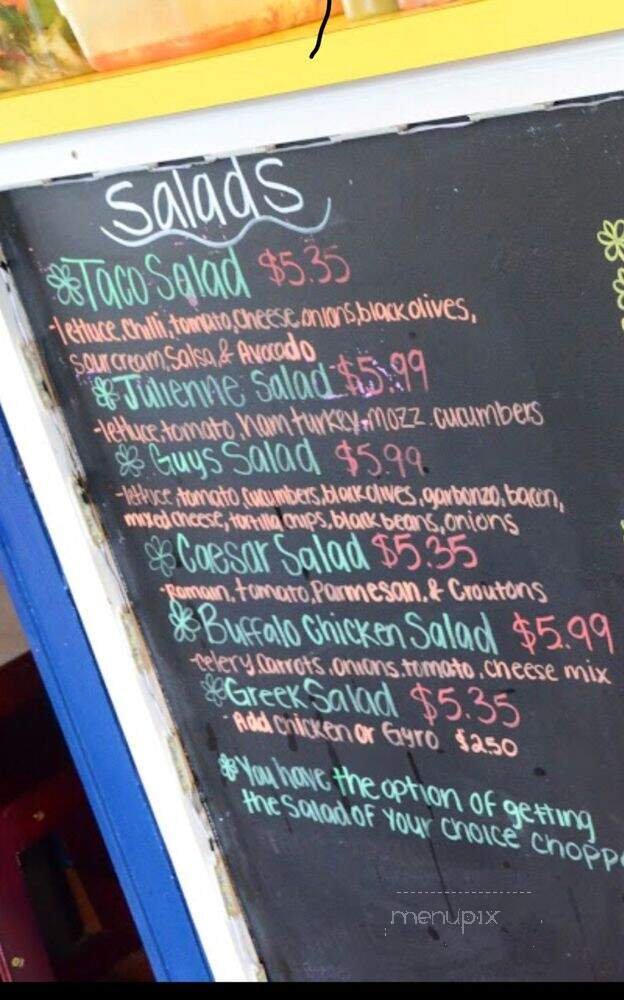 Salads
Taco Salad $5.35
-lettuce, chilli, tomato, cheese, onions, black olives,
sour cream, Salsa, & Avocado
Julienne Salad $5.99
-lettuce, tomato, ham, turkey, mozz. cucumbers
Guys Salad $5.99
-lettuce, tomato, cucumbers, black olives, garbonzo, bacon,
mixed cheese, tortilla chips, black beans, onions
Caesar Salad $5.35
-Romain, tomato, Parmesan, & Croutons
Buffalo Chicken Salad $5.99
-celery, carrots, onions, tomato, cheese mix
Greek Salad $5.35
-Add chicken or Gyro $2.50
You have the option of getting
the salad of your choice chopp
menupix